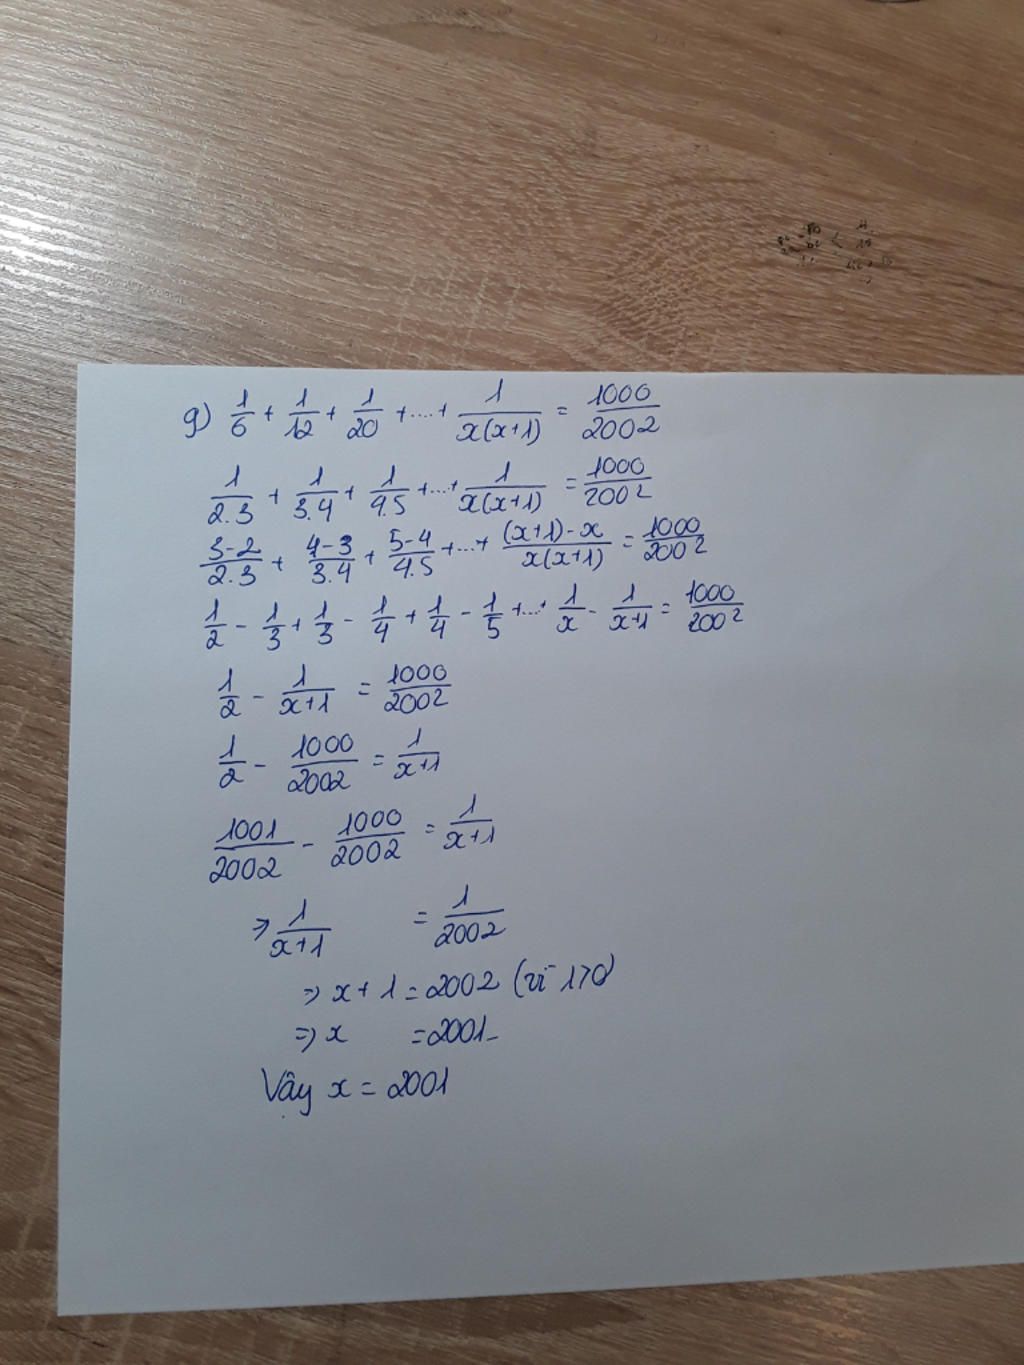 g) 1/6 + 1/12 + 1/20 + .... + 1/x(x+1) = 1000/2002
1/2.3 + 1/3.4 + 1/4.5 + ... + 1/x(x+1) = 1000/2002
3-2/2.3 + 4-3/3.4 + 5-4/4.5 + ... + (x+1)-x/x(x+1) = 1000/2002
1/2 - 1/3 + 1/3 - 1/4 + 1/4 - 1/5 + ... + 1/x - 1/x+1 = 1000/2002
1/2 - 1/x+1 = 1000/2002
1/2 - 1000/2002 = 1/x+1
1001/2002 - 1000/2002 = 1/x+1
⇒ 1/x+1 = 1/2002
⇒ x + 1 = 2002 (vì 1>0)
⇒ x = 2001
Vậy x = 2001